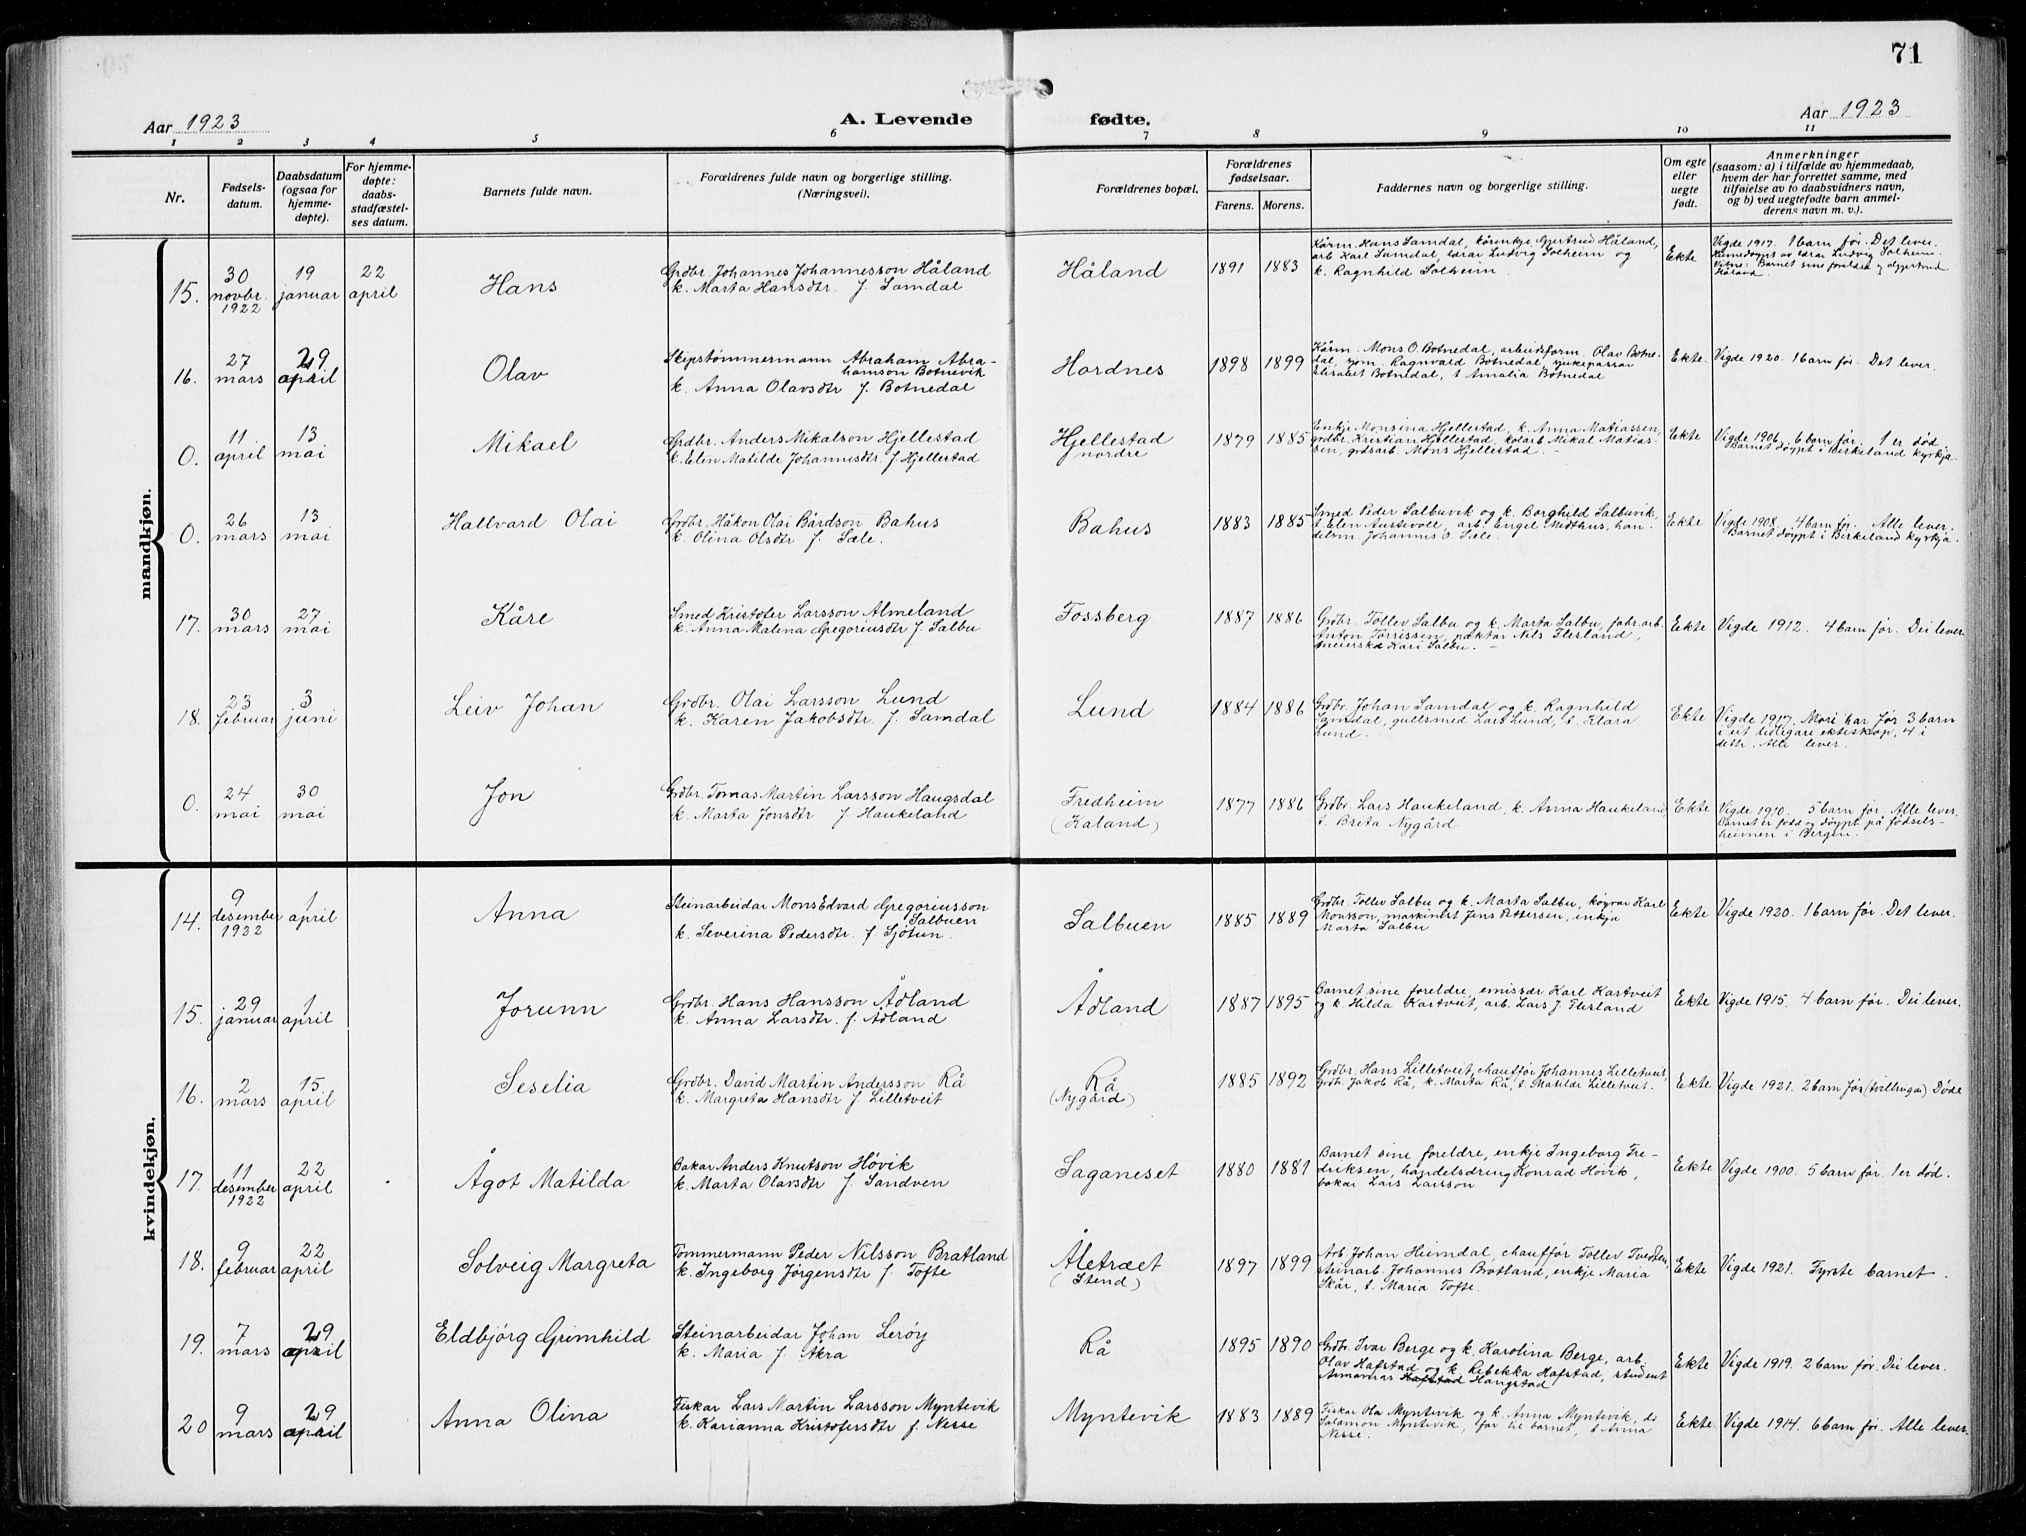 71
Aar 1923
A. Levende fødte.
Aar 1923
1 2 3 4 5 6 7 8 9 10 11
Nr.
Fødsels-
datum.
Daabsdatum
(ogsaa for
hjemme-
døpte).
For hjemme-
døpte:
daabs-
stadfæstel-
ses datum.
Barnets fulde navn.
Forældrenes fulde navn og borgerlige stilling.
(Næringsvei).
Forældrenes bopæl.
Forældrenes
fødselsaar.
Farens. Morens.
Faddernes navn og borgerlige stilling.
Om egte
eller
uegte
født.
Anmerkninger
(saasom: a) i tilfælde av hjemmedaab,
hvem der har forrettet samme, med
tilføielse av to daabsvidners navn,
og b) ved uegtefødte barn anmel-
derens navn m. v.).
mandkjøn.
15.
30
novbr.
1922
19
januar
22
april
Hans
Grdbr. Johannes Johannesson Håland
k. Marta Hansdtr. f. Samdal
Håland
1891 1883
Kårm. Hans Samdal, kårenkje Gjertrud Håland,
arb. Karl Samdal, lærar Ludvig Solheim og
k. Ragnhild Solheim.
Ekte
Vigde 1917. 1 barn før. Det lever.
Heimedøypt av lærar Ludvig Solheim.
Vitne: Barnet sine foreldre og Gjertrud
Håland
16.
27
mars
29
april
Olav
Skipstømmermann Abraham Abra-
hamson Botnevik
k. Anna Olavsdtr f. Botnedal
Hordnes
1898 1899
Kårm. Mons O. Botnedal, arbeidsform. Olav Botne-
dal, sjøm. Ragnvald Botnedal, sjukepassar
Elisabet Botnedal, t. Amalia Botnedal
Ekte
Vigde 1920. 1 barn før. Det lever.
0.
11
april
13
mai
Mikael
Grdbr. Anders Mikalson Hjellestad
k. Elen Matilde Johannesdtr. f. Hjellestad
Hjellestad
nordre
1879 1885
Enkje Monsina Hjellestad, k. Anna Matiassen,
grdbr. Kristian Hjellestad, kolarb. Mikal Matias-
sen, grdsarb. Mons Hjellestad. –
Ekte
Vigde 1906. 6 barn før. 1 er død.
Barnet døypt i Birkeland kyrkja.
0.
26
mars
13
mai
Hallvard Olai
Grdbr. Håkon Olai Bårdson Bahus
k. Olina Olsdtr f. Sæle.
Bahus
1883 1885
Smed Peder Salbuvik og k. Borghild Salbuvik,
t. Elen Austevoll, arb. Engel Midthus, han-
delsm. Johannes O. Sæle.
Ekte
Vigde 1908. 4 barn før. Alle lever.
Barnet døypt i Birkeland kyrkja.
17.
30
mars
27
mai
Kåre
Smed Kristofer Larsson Almeland
k. Anna Malena Gregoriusdtr f. Salbu
Fossberg
1887 1886
Grdbr. Tollev Salbu og k. Marta Salbu, fabr.arb.
Anton Torrissen, paktar Nils Flesland,
meierska Kari Salbu. –
Ekte
Vigde 1912. 4 barn før. Dei lever.
18.
23
februar
3
juni
Leiv Johan
Grdbr. Olai Larsson Lund
k. Karen Jakobsdtr. f. Samdal
Lund
1884 1886
Grdbr. Johan Samdal og k. Ragnhild
Samdal, gullsmed Lars Lund, t. Klara
Lund.
Ekte
Vigde 1917. Mori har før 3 barn
i eit tidligare ekteskap, 4 i
dette. Alle lever.
0.
24
mai
30
mai
Jon
Grdbr. Tomas Martin Larsson Haugsdal
k. Marta Jonsdtr f. Haukeland
Fredheim
(Kaland)
1877 1886
Grdbr. Lars Haukeland, k. Anna Haukeland,
t. Breta Nygård
Ekte
Vigde 1910. 5 barn før. Alle lever.
Barnet er fødd og døypt på fødsels-
heimen i Bergen.
kvindekjøn.
14.
9
desember
1922
1
april
Anna
Steinarbeidar Mons Edvard Gregoriusson
Salbuen
k. Severina Pedersdtr. f. Sjøtun.
Salbuen
1885 1889
Grdbr. Tollev Salbu og k. Marta Salbu, Karl
Monsson, maskinist Jens Pettersen, enkja
Marta Salbu
Ekte
Vigde 1920. 1 barn før. Det lever.
15.
29
januar
1
april
Jorunn
Grdbr. Hans Hansson Ådland
k. Anna Larsdtr. f. Ådland
Ådland
1887 1895
Barnet sine foreldre, emissær Karl Kartveit
og k. Hilda Kartveit, arb. Lars J. Flesland
Ekte
Vigde 1915. 4 barn før. Dei lever.
16.
2
mars
15
april
Seselia
Grdbr. David Martin Andersson Rå
k. Margreta Hansdtr f. Lilletveit
Rå
(Nygård)
1885 1892
Grdbr. Hans Lilletveit, chauffør Johannes Lilletveit,
grdb. Jakob Rå, k. Marta Rå, t. Matilde Lilletveit.
Ekte
Vigde 1921. 2 barn før (tvillingar) Døde
17.
11
desember
1922
22
april
Ågot Matilda
Bakar Anders Knutson Høvik
k. Marta Olavsdtr f. Sandven
Saganeset
1880 1881
Barnet sine foreldre, enkje Ingeborg Fre-
driksen, handelsdreng Konrad Høvik,
bakar Lars Larsson
Ekte
Vigde 1900. 5 barn før. 1 er død.
18.
9
februar
22
april
Solveig Margreta
Tømmermann Peder Nilsson Bratland
k. Ingeborg Jørgensdtr f. Tofte
Åletræet
(Stend)
1897 1899
Arb. Johan Heimdal, chauffør Tollev Tvedten,
steinarb. Johannes Bratland, enkje Maria
Skår, t. Maria Tofte.
Ekte
Vigde 1921. Fyrste barnet.
19.
7
mars
29
april
Eldbjørg Grimhild
Steinarbeidar Johan Lerøy
k. Maria f. Åkra
Rå
1895 1890
Grdbr. Ivar Berge og k. Karolina Berge, arb.
Olav Hafstad og k. Rebekka Hafstad, student
Hafstad Haugstad
Ekte
Vigde 1919. 2 barn før. Dei lever.
20
9
mars
29
april
Anna Olina
Fiskar Lars Martin Larsson Myntevik
k. Karianna Kristofersdtr f. Nesse
Myntevik
1883 1889
Fiskar Ola Myntevik og k. Anna Myntevik, do
Salamon Myntevik, far til barnet, t Anna
Nesse.
Ekte
Vigde 1914. 6 barn før. Alle lever.